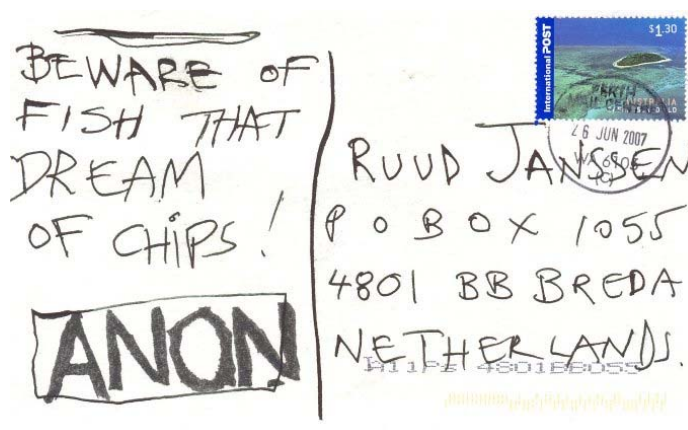 BEWARE OF
FISH THAT
DREAM
OF CHIPS!
ANON
International POST
$1.30
AUSTRALIA
PERTH
MAIL CENTRE
26 JUN 2007
WA 6105
(C)
RUUD JANSSEN
P O BOX 1055
4801 BB BREDA
NETHERLANDS.
4801BB055